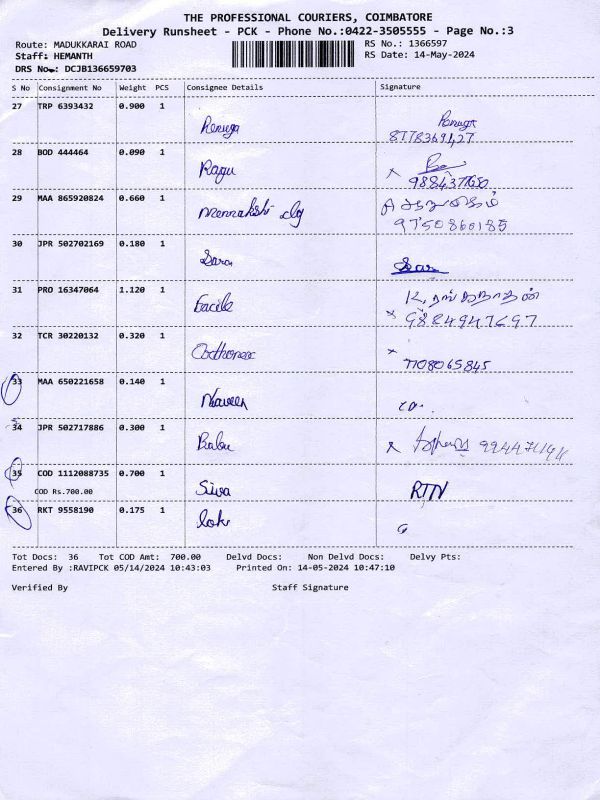 THE PROFESSIONAL COURIERS, COIMBATORE
Delivery Runsheet - PCK - Phone No.:0422-3505555 - Page No.:3
Route: MADUKKARAI ROAD RS No.: 1366597
Staff: HEMANTH RS Date: 14-May-2024
DRS No.: DCJB136659703
S No Consignment No Weight PCS Consignee Details Signature
27 TRP 6393432 0.900 1
Renuga Renuga
8778369427
28 BOD 444464 0.090 1
Ragu x
9884377650
29 MAA 865920824 0.660 1
Meenakshi
9750860185
30 JPR 502702169 0.180 1
Saran Saran
31 PRO 16347064 1.120 1
Facile x 9884947697
32 TCR 30220132 0.320 1
x
7708065845
33 MAA 650221658 0.140 1
Naveen
34 JPR 502717886 0.300 1
Babu x
35 COD 1112088735 0.700 1
COD Rs.700.00 Siva RTTN
36 RKT 9558190 0.175 1
lok
Tot Docs: 36 Tot COD Amt: 700.00 Delvd Docs: Non Delvd Docs: Delvy Pts:
Entered By :RAVIPCK 05/14/2024 10:43:03 Printed On: 14-05-2024 10:47:10
Verified By Staff Signature